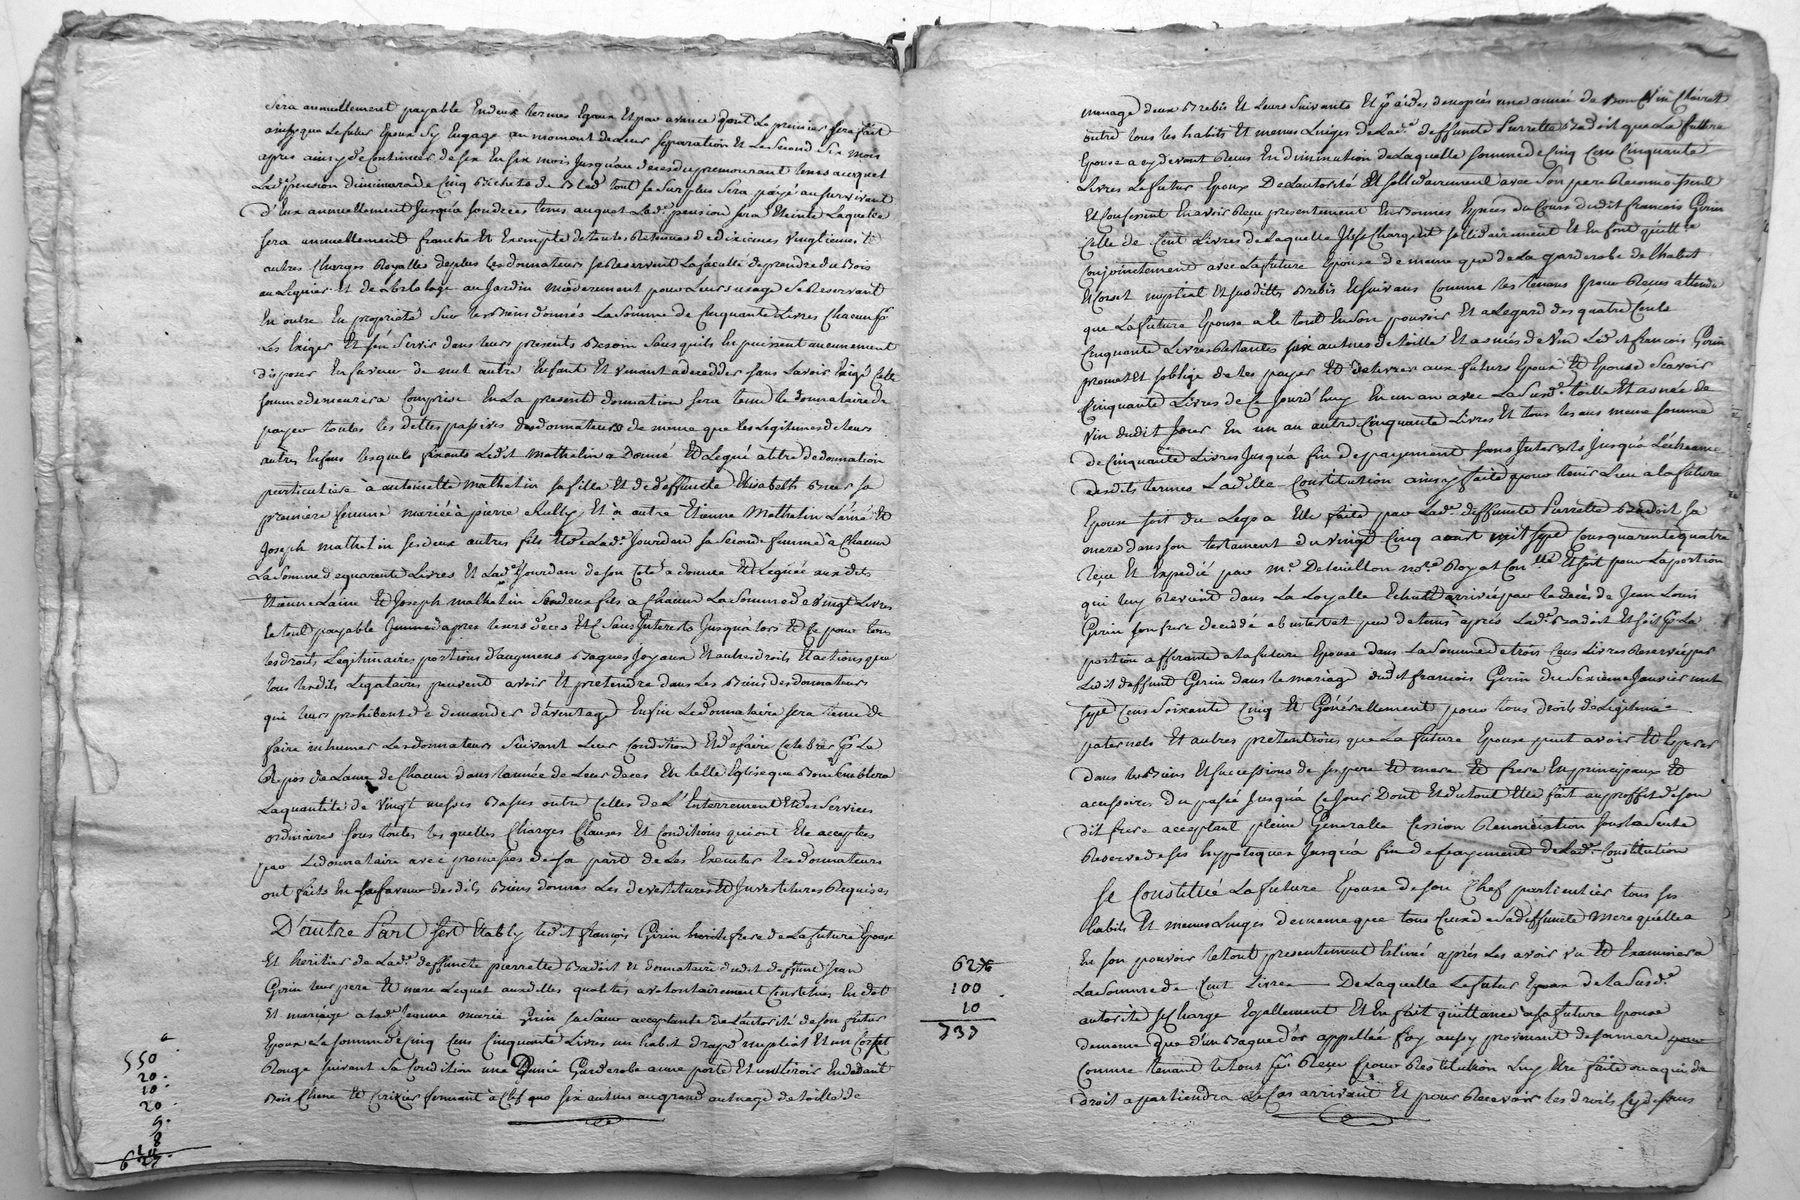 sera annuellement payable En deux termes Egaux Et par avance dont Le premier sera fait
ainsy que Le futur Epoux sy Engage au moment de Leur separation Et Le second six mois
apres ainsy de Continuer de six En six mois Jusqu'au deces du premourant tems auquel
Lad.e pension diminuera de Cinq Bichets de Bled tout le surplus sera payé au survivant
d'Eux annuellement Jusqu'a son deces tems auquel Lad.e pension sera Eteinte Laquelle
sera annuellement franche Et Exempte de toutes Retenues de dixiemes vingtiemes Et
autres Charges Royalles de plus Les donnateurs se Reservent La faculté de prendre du Bois
au Legnier Et de Lortolage au Jardin moderement pour Leurs usage se Reservant
En outre En propriété sur les Biens donnés La somme de Cinquante Livres Chacun pr
Les Exiger Et sen servir dans Leurs presents Besoin sans quils En puissent aucunement
disposer En faveur de nul autre Enfant Et venant a deceddér sans Lavoir Exigé Cette
somme demeurera Comprise En La present donnation sera tenu Le donnataire de
payer toutes les dettes passives des donnateurs de meme que les Legitimes de leurs
autres Enfans lesquels fixants Ledit Mathelin a Donné Et Legué a titre de donnation
particulière à antoinette Mathelin sa fille Et de deffuncte Elisabeth sa
première femme mariée à pierre Rully Et à autre Etienne Mathelin L'ainé Et
Joseph mathelin ses deux autres fils Et de Lad.e Jourdan sa seconde femme à Chacun
La somme de quarente Livres Et Lad.e Jourdan de son Coté a donnée Et Léguée aux dits
Etienne Lainé Et Joseph Mathelin ses deux fils a Chacun La somme de vingt Livres
le tout payable Jmmed apres leurs deces Et sans Interets Jusqu'alors Et Ce pour tous
les droits Legitimaires portions d'augmens Bagues Joyaux Et autres droits Et actions que
tous lesdits Legataires peuvent avoir Et pretendre dans Les Biens des donnateurs
qui leur prohibent de demander d'aventage Enfin Le donnataire sera tenu de
faire inhumer Les donnateurs suivant Leur Condition Et de faire Celebrer pr Le
Repos de Lame de Chacun dans Lannée de Leur deces En telle Eglise que Bon semblera
La quantité de vingt messes Basses outre Celles de L'Enterrement Et des services
ordinaires sous toutes les quelles Charges Clauses Et Conditions qui ont Eté acceptées
par Ledonnataire avec promesses de sa part de Les Executer Les donnateurs
ont faits En sa faveur desdits Biens donnés Les devestitures Et Jnvestitures Requises
D'autre Part s'est Etably ledit françois Girin frere de La future Epouse
Et héritier de Lad.e deffuncte pierrette Badoit Et donnataire dudit deffunt Jean
Girin leur pere Et mere Lequel auxdittes qualités a volontairement Constitués En dot
Et mariage a Lad.e Jeanne Marie Girin sa sœur acceptante de L'autorité de son futur
Epoux La somme de Cinq Cens Cinquante Livres un habit drap nuptial Et un Corset
Rouge suivant sa Condition une Garderobe a une porte Et un tiroir En dedant
Bois Chene Et Cerisier fermant à Clef six aulnes au grand aulnage de toille de
550
20
10
20
9
8
10
627
menage deux Brebis Et Leurs suivants Et une année de Bon Vin Clairet
outre tous les habits Et menus Linges de Lad.e deffuncte Pierrette Badoit que La future
Epouse a cy devant Reçus En diminution de Laquelle somme de Cinq Cens Cinquante
Livres Le futur Epoux De L'autorité Et sollidairement avec son pere Reconnoissent
Et Confessent En avoir Reçu presentement En Bonnes Espèces du Cours dudit françois Girin
Celle de Cent Livres de Laquelle Jls se Chargent sollidairement Et En font quitt.ce
Conjointement avec La future Epouse de meme que de La garderobe de l'habit
Et Corset nuptial Et susdittes Brebis Et suivans Comme les tenans pour Reçus attendu
que La future Epouse a le tout En son pouvoir Et a Legard des quatre Cents
Cinquante Livres Restantes six aulnes de toille Et asnées de Vin Ledit francois Girin
promet Et s'oblige de les payer Et delivrer aux futurs Epoux Et Epouse scavoir
Cinquante Livres de Ce Jourd'huy En un an avec La susd.e toille Et asnée de
Vin dudit Jour En un an autre Cinquante Livres Et tous les ans meme somme
de Cinquante Livres Jusqu'à fin de payement sans Interets Jusqu'à L'écheance
desdits termes Ladite Constitution ainsy faite pour tenir Lieu a la future
Epouse soit du Legs a Elle faite par Lad.e deffuncte Pierrette Badoit sa
mere dans son testament du vingt Cinq mil sept Cens quarente quatre
reçu Et Expedié par M.e not.e Royal Con Et soit pour La portion
qui luy Revient dans La Loyalle Echute arrivée par le deces de Jean Louis
Girin son frere decedé ab intestat peu de tems après Lad.e Badoit Et soit pr La
portion afferante a la future Epouse dans La Somme de trois Cens Livres Reservée par
Ledit deffunt Girin dans le mariage dudit francois Girin du sixieme Janvier mil
sept Cens soixante Cinq Et Générallement pour tous droits de Legitime
paternels Et autres pretentions que La future Epouse peut avoir Et Esperer
dans les Biens Et successions de ses pere Et mere Et frere En principaux Et
accessoires du passé Jusqu'à Ce Jour Dont Et du tout Elle fait au proffit de son
dit frere acceptant pleine Generalle Cession Renonciation sous La seule
Reserve de ses hypoteques Jusqu'a fin de payement de Lad.e Constitution
Se Constitué La future Epouse de son Chef particulier tous ses
habits Et menus Linges de meme que tous Ceux de sa deffuncte Mere quelle a
En son pouvoir le tout presentement Estimé après Les avoir vu Et Examiner a
La somme de Cent Livres De Laquelle Le futur Epoux de la susd.e
autorité se Charge Egallement Et En fait quittance a sa future Epouse
de meme que d'un Bague d'or appellée foy aussy provenant de sa mere pour
Comme tenant le tout pr Reçu Et pour Restitution Luy Etre faite ou a qui de
droit apartiendra Le Cas arrivant Et pour Recevoir les droits Cy dessus
627
100
10
737